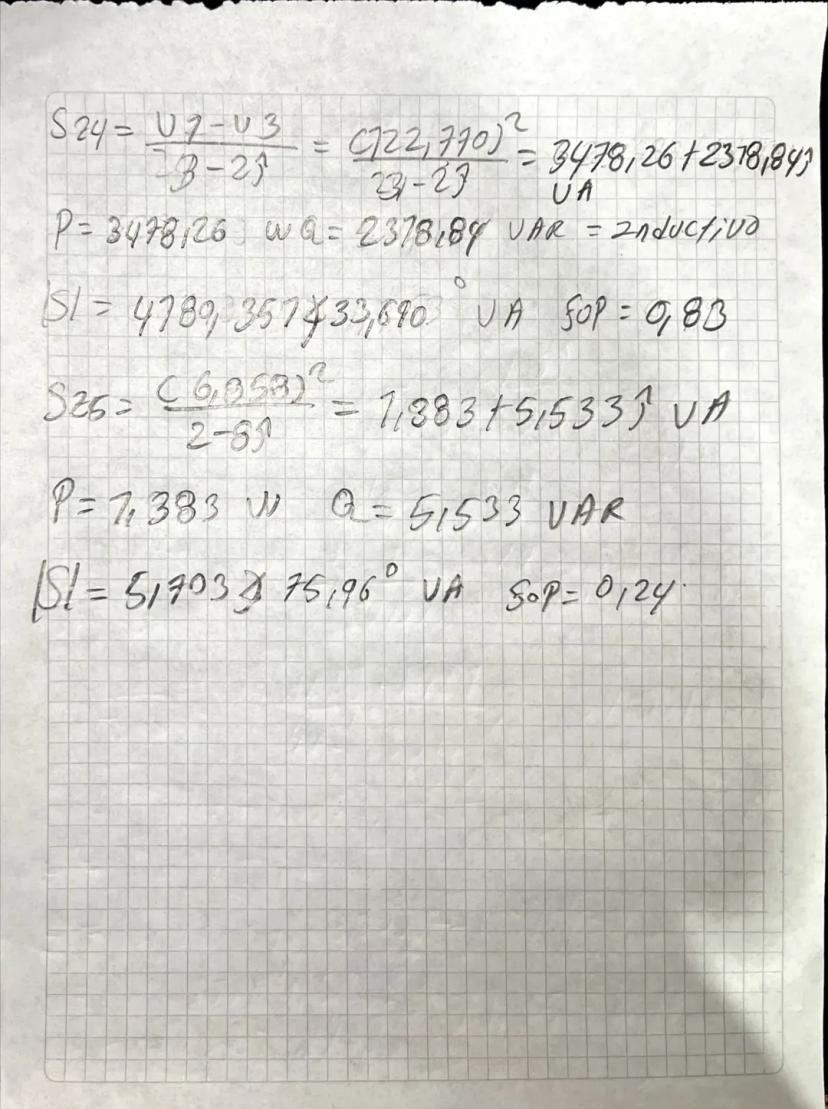 SZ4 = U1-U3 / 3-2j = (122,770)² / 3-2j = 3478,26+2318,84j
VA
P = 3478,26 W Q = 2318,84 VAR = Inductivo
|S| = 4180,357∡33,690° VA fop = 0,83
SZ5 = (6,858)² / 2-8j = 1,383+5,533j VA
P = 1,383 W Q = 5,533 VAR
|S| = 5,703∡75,96° VA fop = 0,24